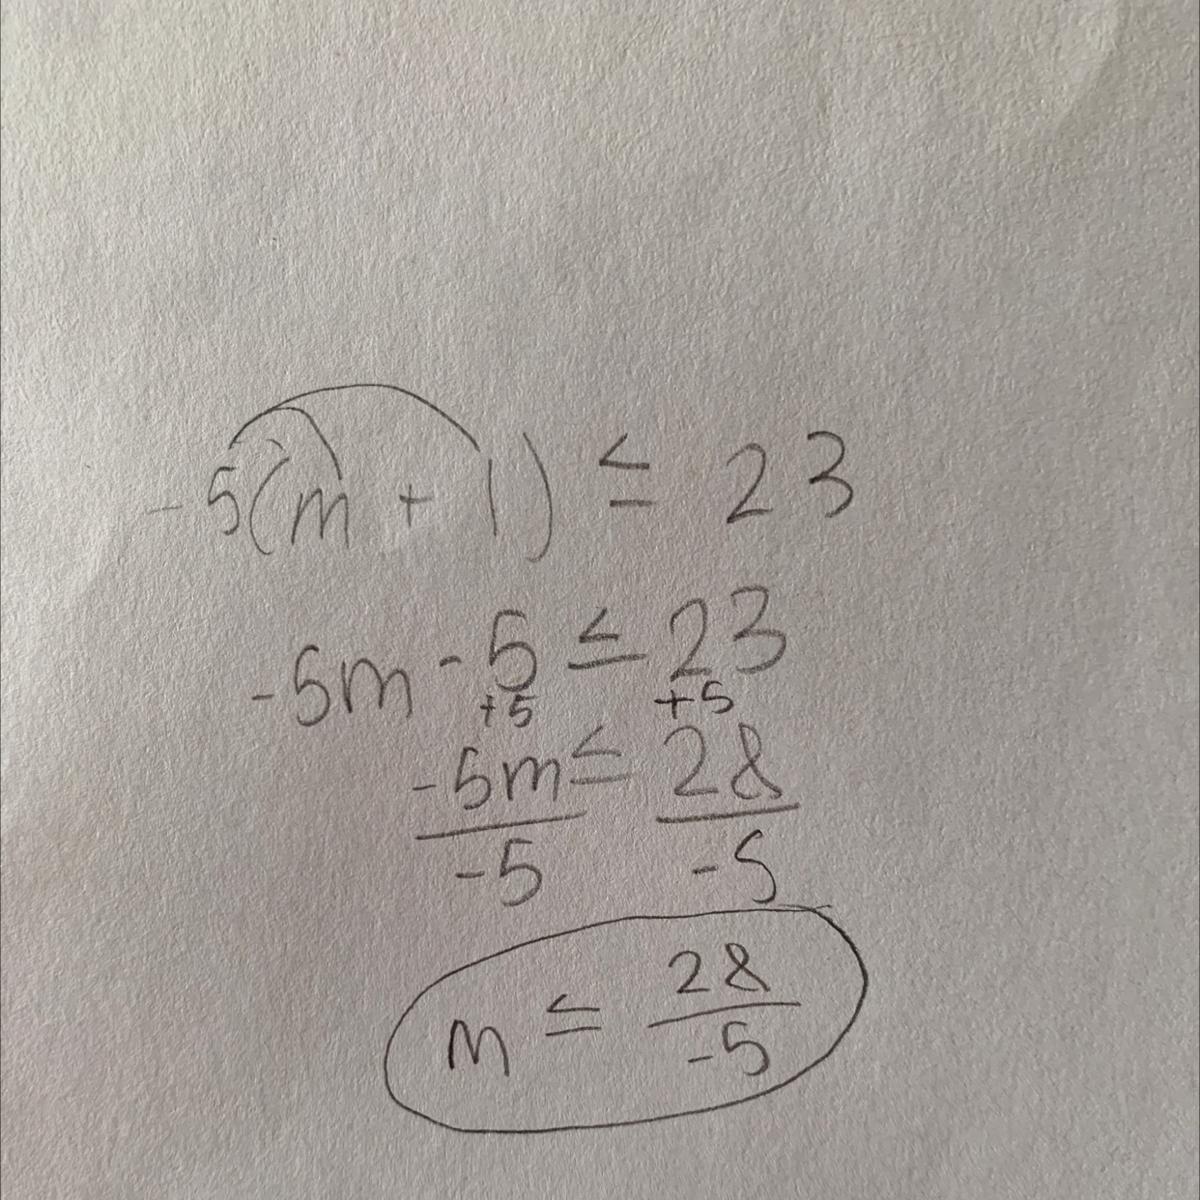 -5(m + 1) ≤ 23
-5m - 5 ≤ 23
+5 +5
-5m ≤ 28
-5 -5
m ≤ 28/-5